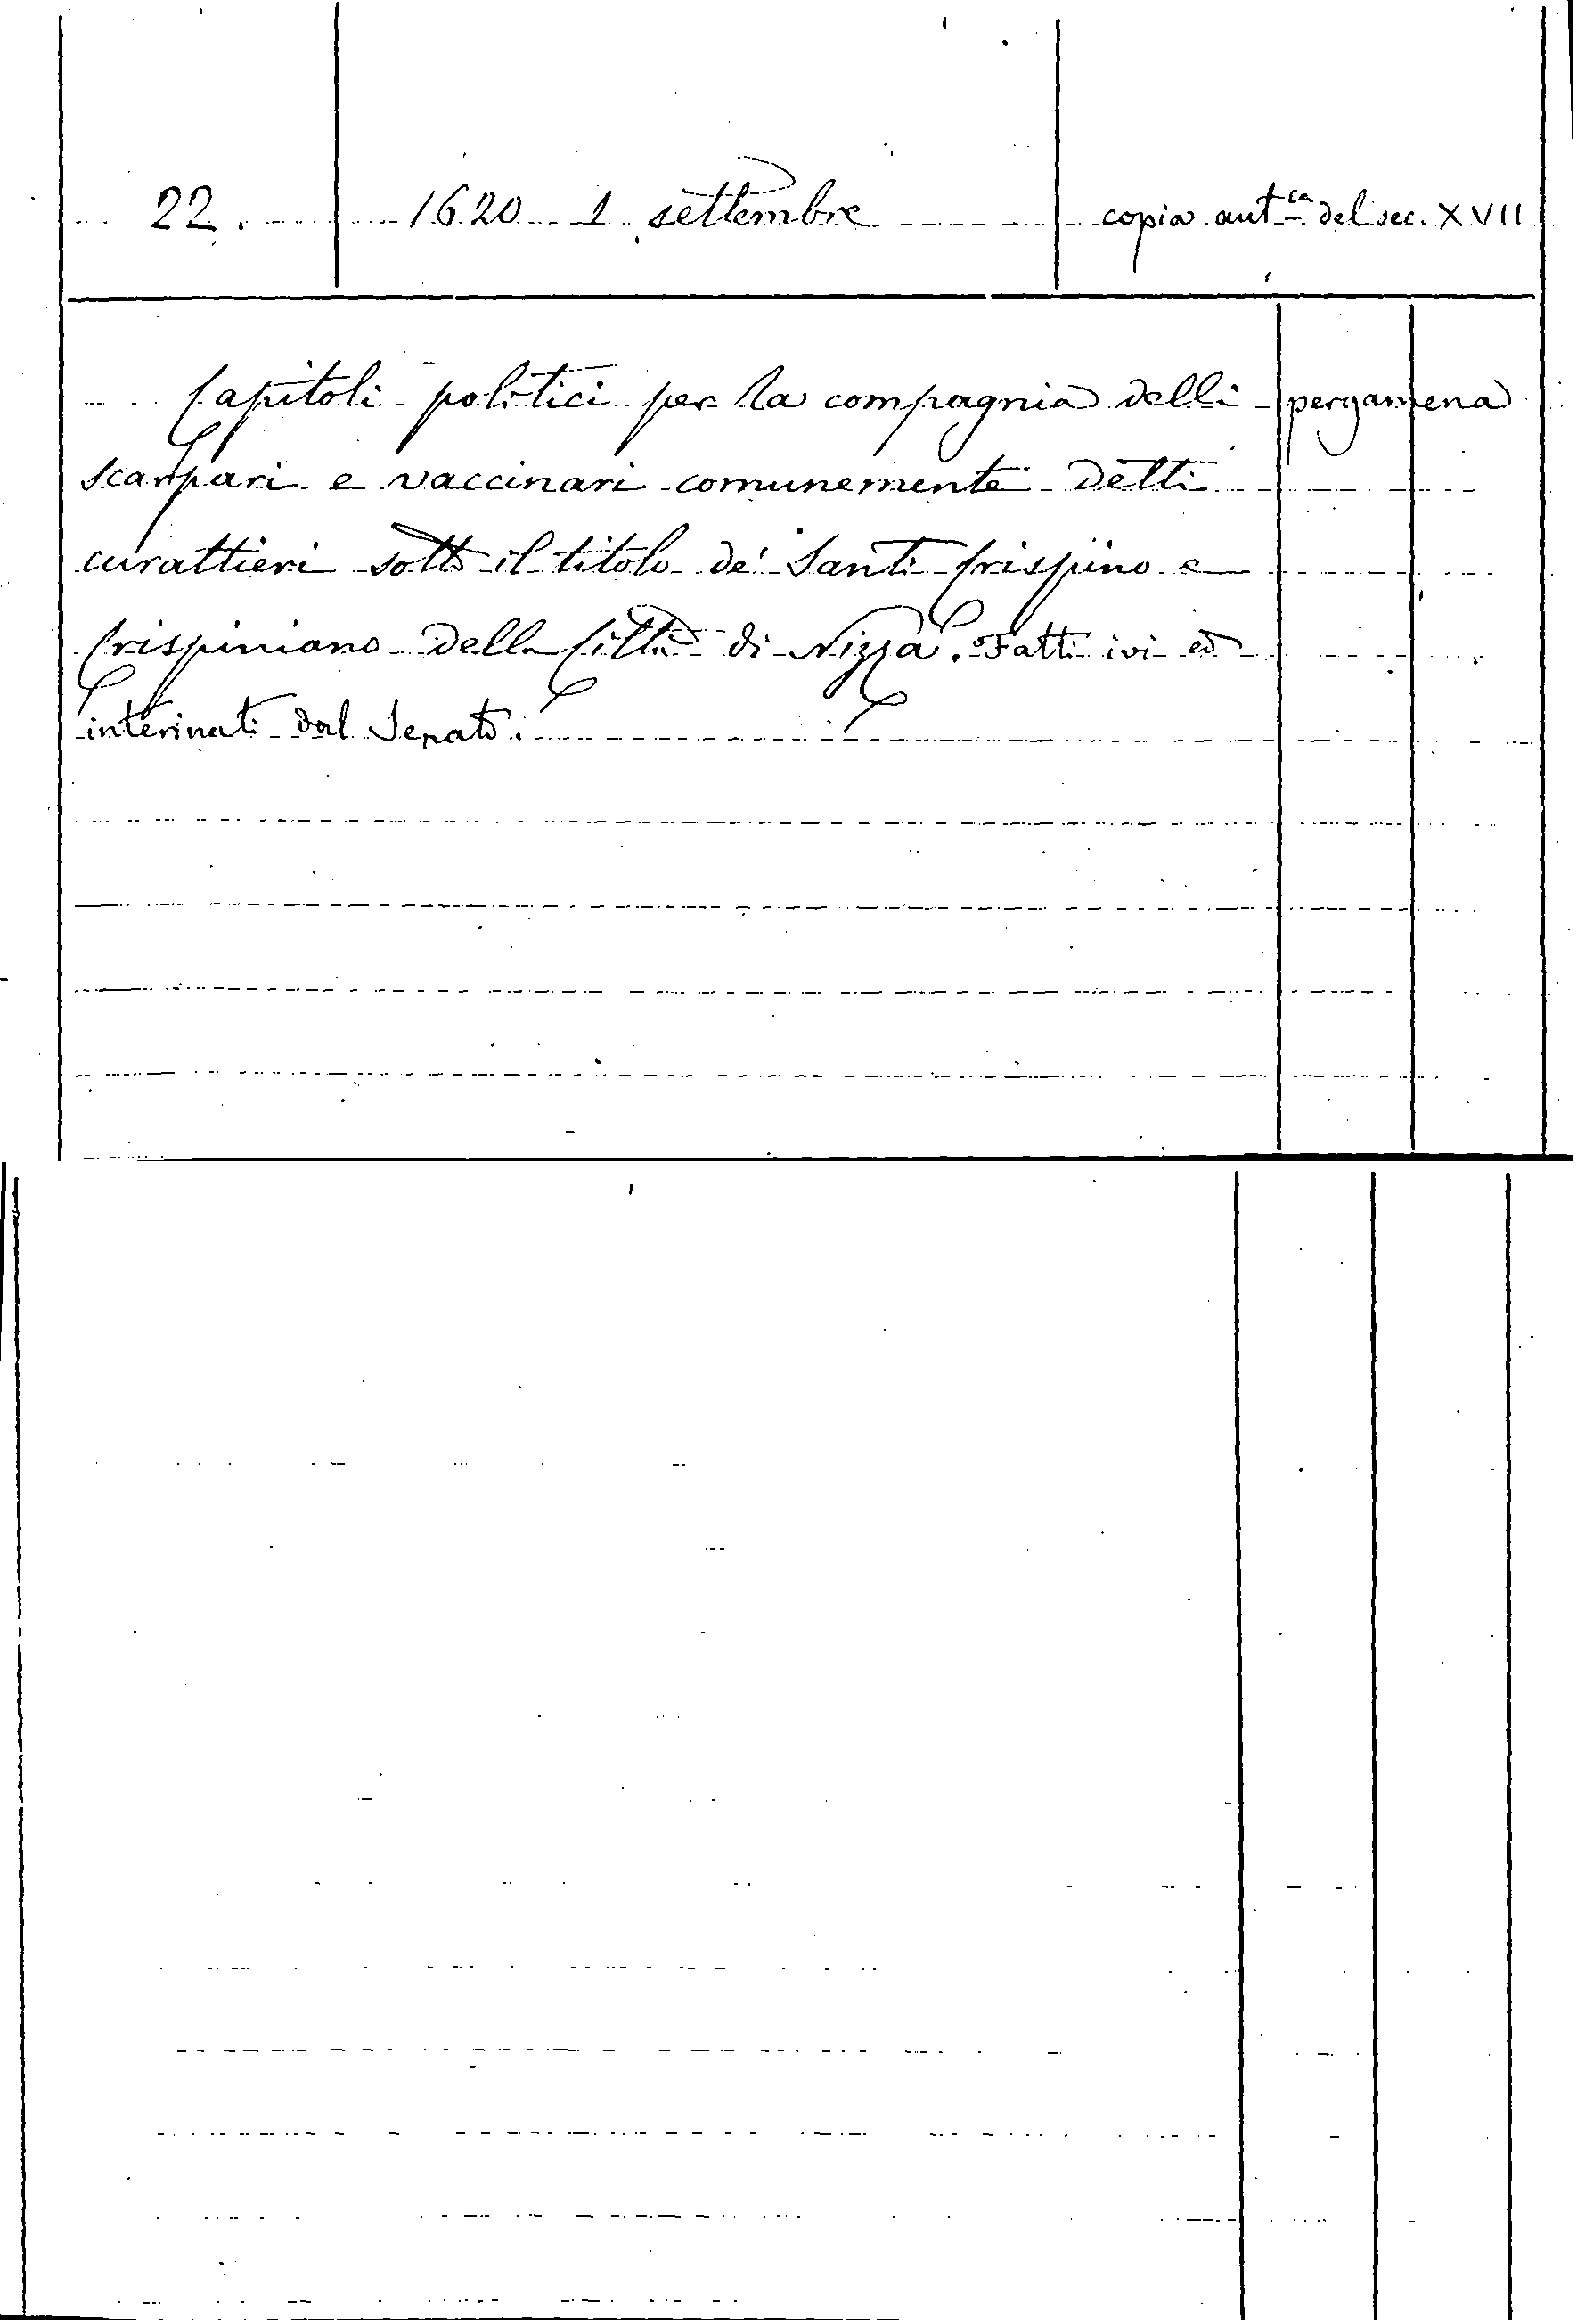 22. 1620 1 settembre copia aut.ca del sec. XVII
Capitoli politici per la compagnia delli pergamena
scarpari e vaccinari comunemente detti
curattieri sotto il titolo de' Santi Crispino e
Crispiniano della Città di Nizza. Fatti ivi ed
interinati dal Senato.